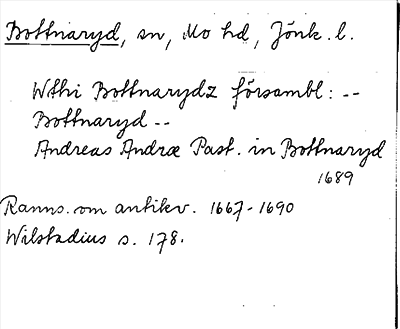 Bottnaryd, sn, Mo hd, Jönk. l.
Wthi Bottnarydz försambl: --
Bottnaryd --
Andreas Andræ Past. in Bottnaryd
1689
Ranns. om antikv. 1667-1690
Wilstadius s. 178.